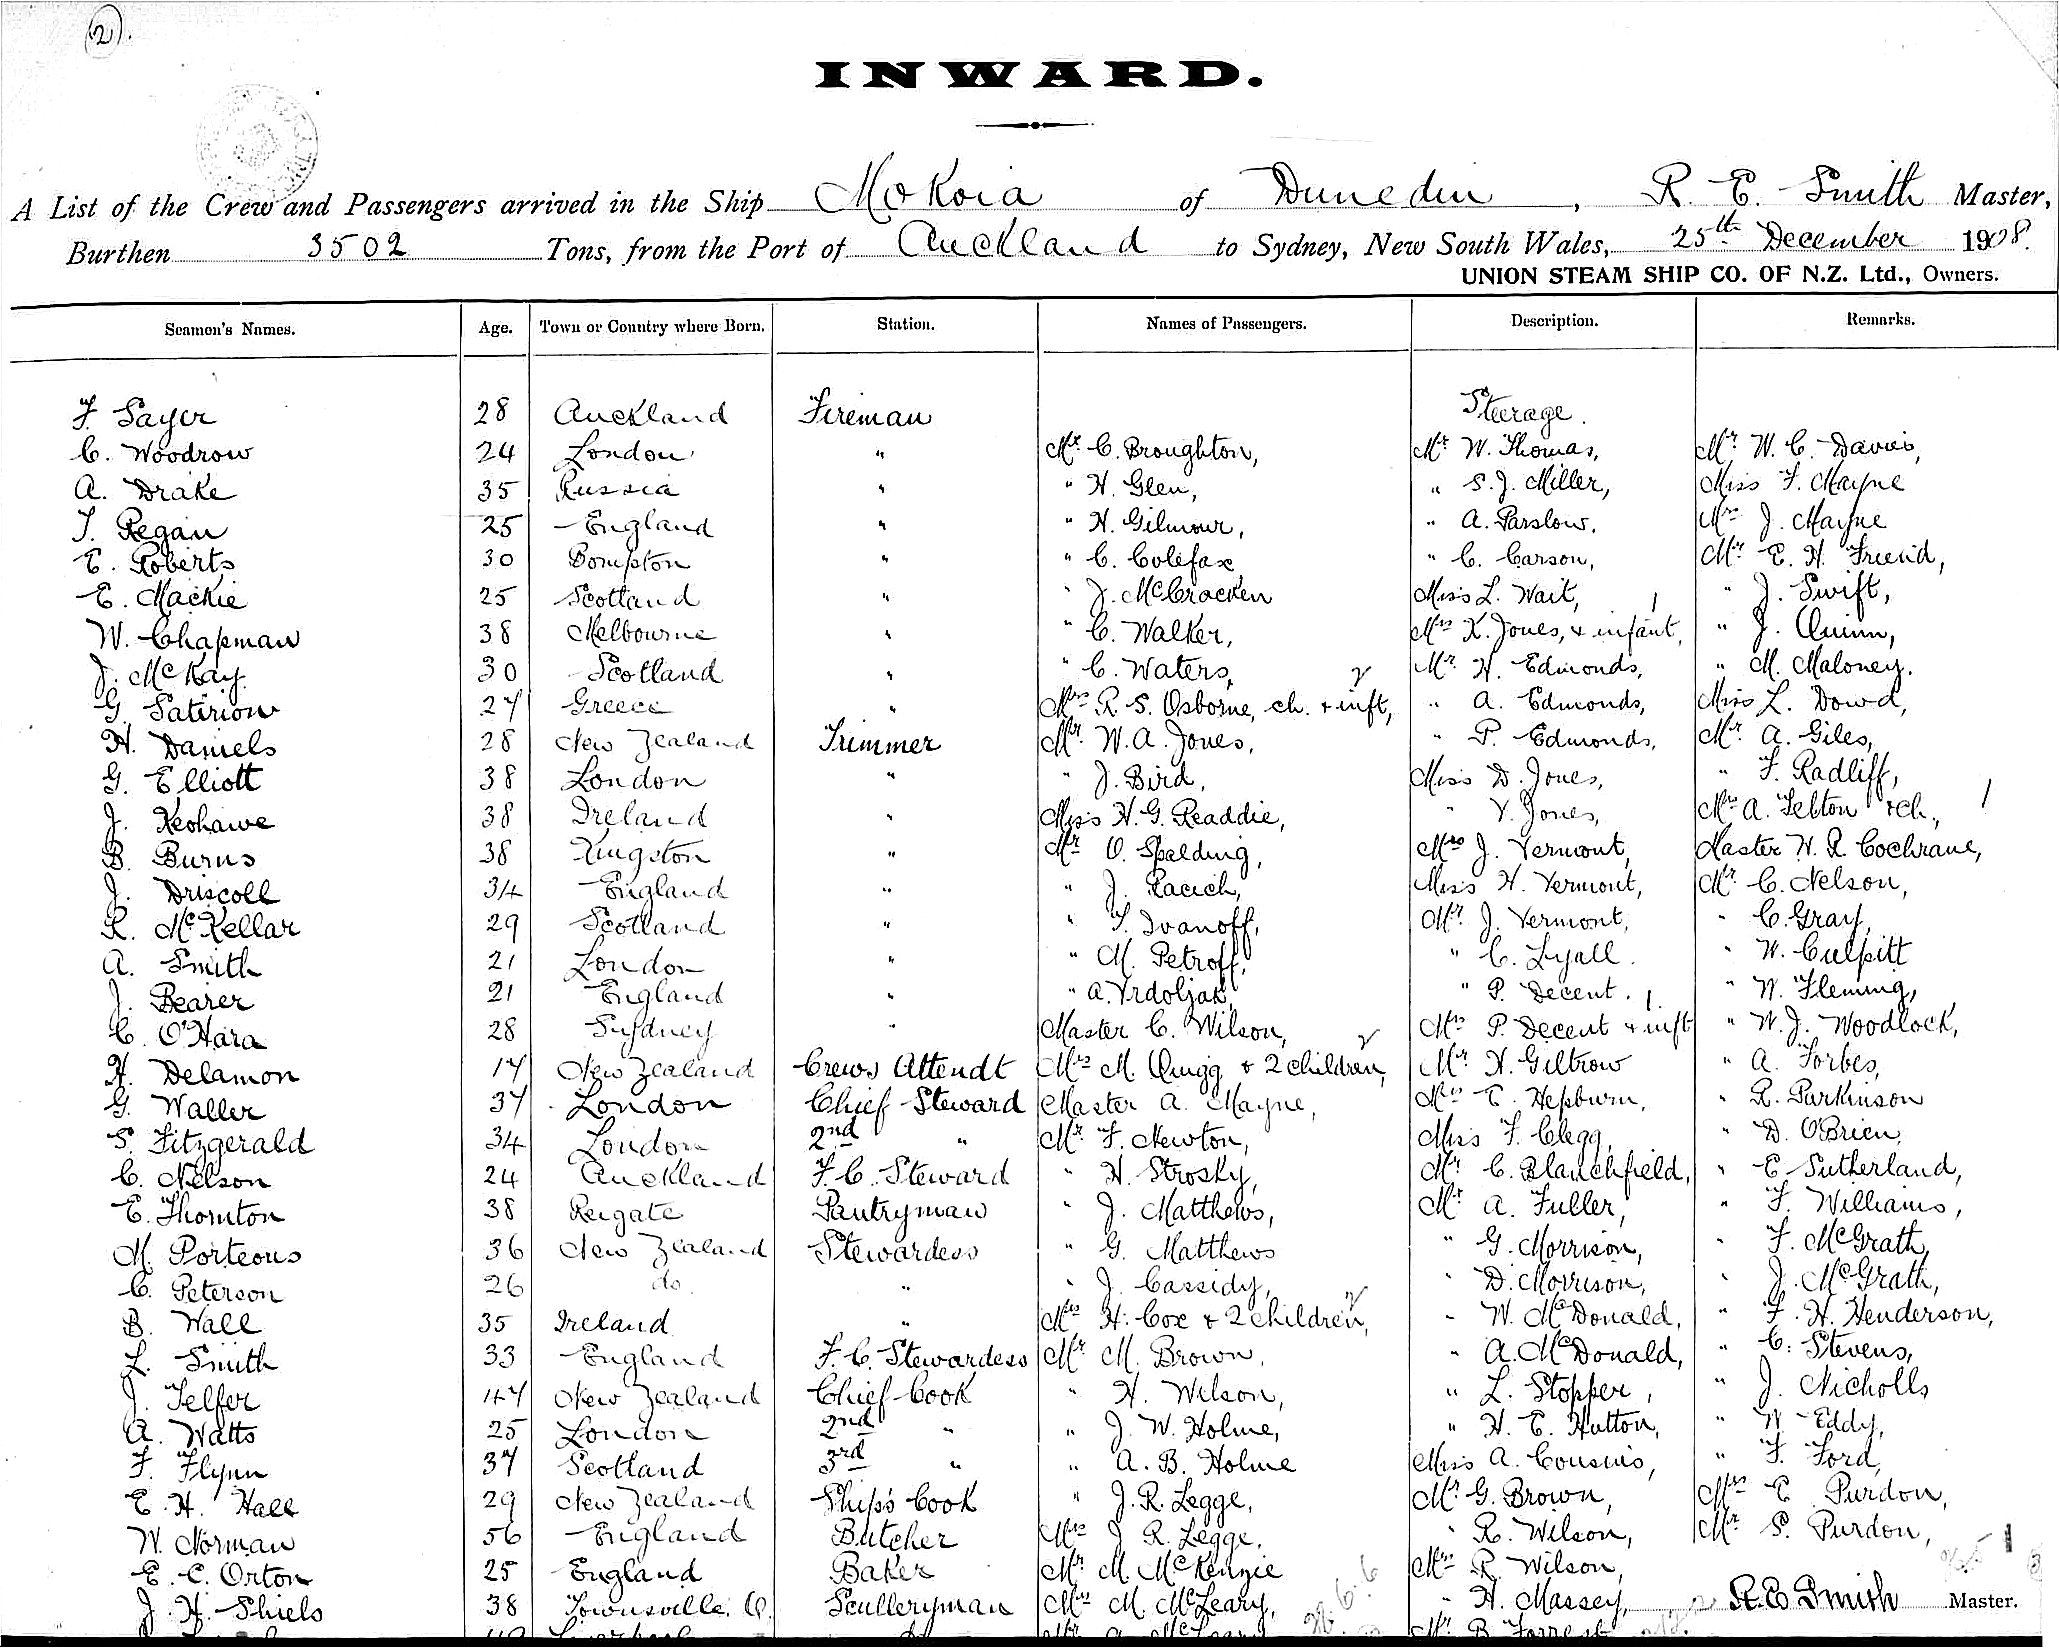 (2).
INWARD.
A List of the Crew and Passengers arrived in the Ship Mokoia of Dunedin, R. E. Smith Master,
Burthen 3502 Tons, from the Port of Auckland to Sydney, New South Wales, 25th December 1908.
UNION STEAM SHIP CO. OF N.Z. Ltd., Owners.
Seamen's Names. Age. Town or Country where Born. Station. Names of Passengers. Description. Remarks.
F. Sayer 28 Auckland Fireman Steerage.
C. Woodrow 24 London " Mr. C. Broughton, Mr. W. Thomas, Mr. W. C. Davies,
A. Drake 35 Russia " " H. Glen, " S. J. Miller, Miss F. Mayne
T. Regan 25 England " " H. Gilmour, " A. Parslow. Mrs J. Mayne
E. Roberts 30 Bompton " " C. Colefax " C. Carson, Mr. E. H. Friend,
E. Mackie 25 Scotland " " J. McCracken Miss L. Wait, " J. Swift,
W. Chapman 38 Melbourne " " C. Walker, Mrs K. Jones, & infant, " J. Quinn,
J. McKay 30 Scotland " " C. Waters, Mr. H. Edmonds, " M. Maloney.
G. Satirion 27 Greece " Mrs R. S. Osborne, ch. & inft, " A. Edmonds, Miss L. Dowd,
H. Daniels 28 New Zealand Trimmer Mr. W. A. Jones, " P. Edmonds, Mr. A. Giles,
G. Elliott 38 London " " J. Bird, Miss D. Jones, " F. Radliff,
J. Keohawe 38 Ireland " Miss H. G. Readdie, " V. Jones, Mrs A. Felton & ch.,
B. Burns 38 Kingston " Mr O. Spalding, Mrs J. Vermont, Master H. R. Cochrane,
J. Driscoll 34 England " " J. Racich, Miss H. Vermont, Mr. C. Nelson,
R. McKellar 29 Scotland " " T. Ivanoff, Mr. J. Vermont, " C. Gray,
A. Smith 21 London " " M. Petroff, " C. Lyall. " W. Culpitt
J. Bearer 21 England " " A. Vrdoljak, " P. Decent. " W. Fleming,
C. O'Hara 28 Sydney " Master C. Wilson, Mrs P. Decent & inft " W. J. Woodlock,
H. Delamon 17 New Zealand Crews Attendt Mrs M. Quigg & 2 children, Mr. H. Giltrow " A. Forbes,
G. Waller 37 London Chief Steward Master A. Mayne, Mrs E. Hepburn, " R. Parkinson
S. Fitzgerald 34 London 2nd " Mr. F. Newton, Miss F. Clegg, " D. O'Brien,
C. Nelson 24 Auckland F. C. Steward " H. Strosky, Mr. C. Blanchfield, " E Sutherland,
E. Thornton 38 Reigate Pantryman " J. Matthews, Mr. A. Fuller, " F. Williams,
M. Porteous 36 New Zealand Stewardess " G. Matthews " G. Morrison, " F. McGrath,
C. Peterson 26 do. " " J. Cassidy, " D. Morrison, " J. McGrath,
B. Wall 35 Ireland " Mrs H. Cox & 2 children, " W. McDonald, " F. H. Henderson,
L. Smith 33 England F. C. Stewardess Mr. M. Brown, " A. McDonald, " C. Stevens,
J. Telfer 47 New Zealand Chief Cook " H. Wilson, " L. Stopper, " J. Nicholls
A. Watts 25 London 2nd " " J. W. Holme, " H. E. Hutton, " W. Eddy,
F. Flynn 37 Scotland 3rd " " A. B. Holme Miss A. Cousins, " F. Ford,
E. H. Hall 29 New Zealand Ship's Cook " J. R. Legge, Mr. G. Brown, Mrs E Purdon,
W. Norman 56 England Butcher Mrs J. R. Legge, " R. Wilson, Mr. S. Purdon,
E. C. Orton 25 England Baker Mr. M. McKenzie Mrs R. Wilson,
J. H. Shiels 38 Townsville, Q. Sculleryman Mrs M. McLeary, " H. Massey, R. E. Smith Master.
Mr. B. Forrest